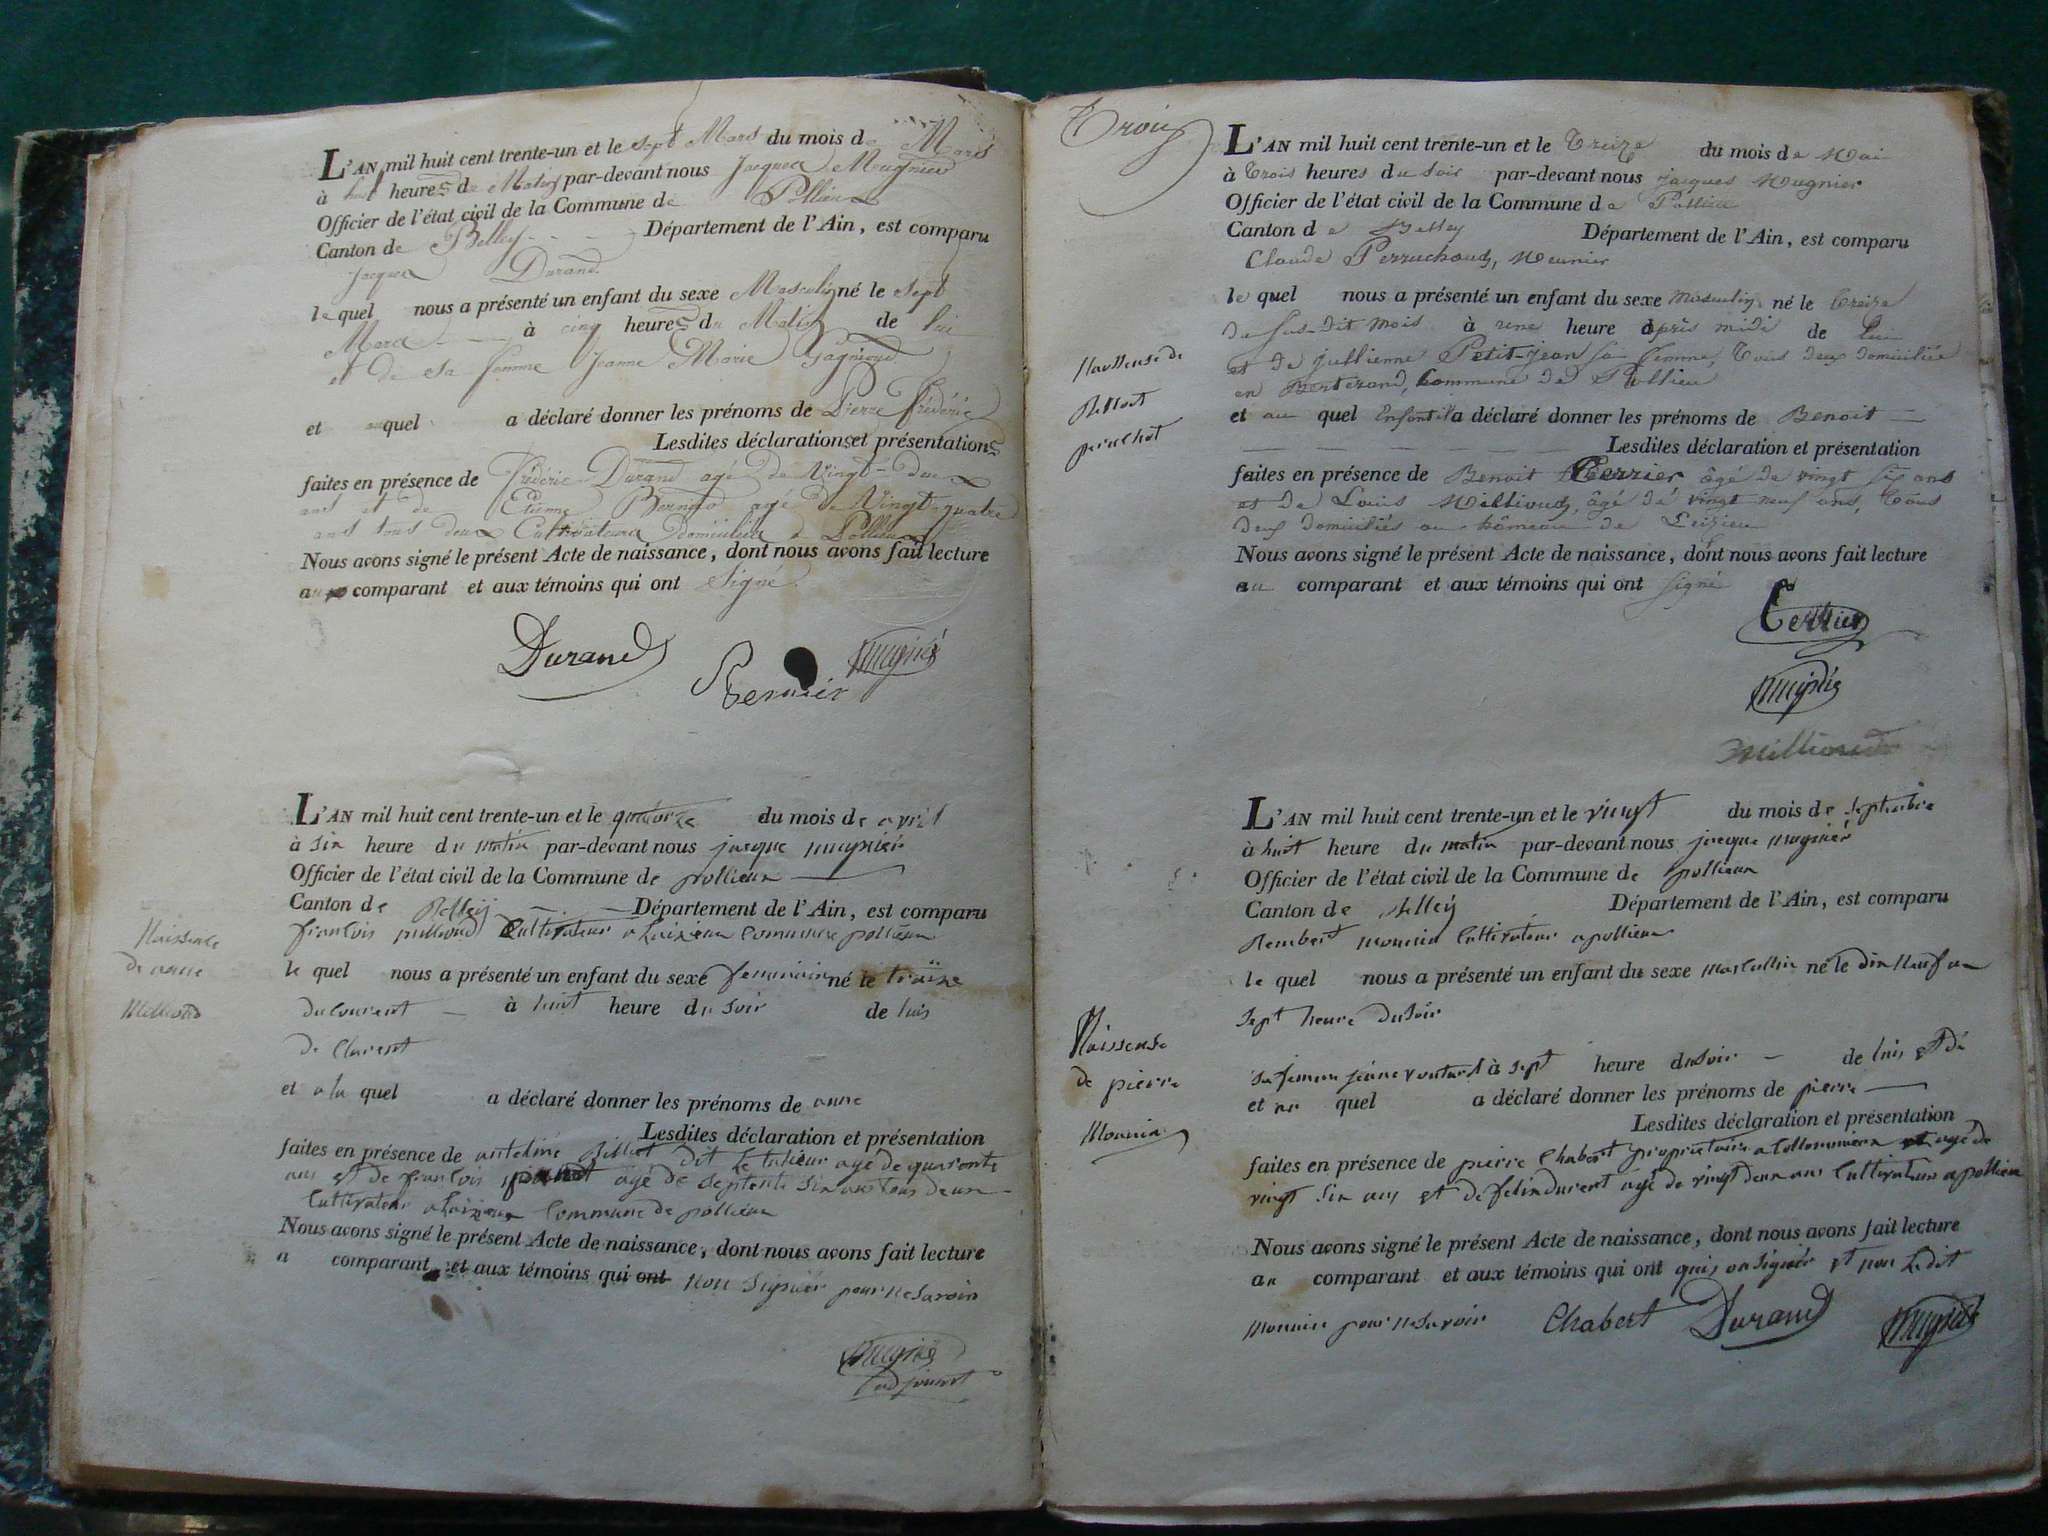 L'AN mil huit cent trente-un et le sept Mars du mois de Mars
à huit heures du Matin par-devant nous Jacques Mugnier
Officier de l'état civil de la Commune de Pollieux
Canton de Belley Département de l'Ain, est comparu
Jacques Durand
le quel nous a présenté un enfant du sexe Masculin né le sept
Mars à cinq heures du Matin de lui
et de sa femme Jeanne Marie
et quel a déclaré donner les prénoms de Pierre Frédéric
Lesdites déclarations et présentations
faites en présence de Frédéric Durand agé de Vingt-deux
ans et de Etienne agé de Vingt-quatre
ans tous deux Cultivateurs domiciliés à Pollieux
Nous avons signé le présent Acte de naissance, dont nous avons fait lecture
au comparant et aux témoins qui ont Signé
Durand
Bernier
mugnié
Naissance
de anne
Millioud
L'AN mil huit cent trente-un et le quatorze du mois de avril
à six heure du matin par-devant nous jacque mugnier
Officier de l'état civil de la Commune de pollieux
Canton de Belley Département de l'Ain, est comparu
francois millioud Cultivateur commune pollieux
le quel nous a présenté un enfant du sexe feminain né le traize
du courent à huit heure du soir de luis
De
et a la quel a déclaré donner les prénoms de anne
Lesdites déclaration et présentation
faites en présence de antelme Billiot dit le agé de quarente
ans et de francois agé de septente six ans tous deux
Cultivateur Commune de pollieux
Nous avons signé le présent Acte de naissance, dont nous avons fait lecture
a comparant et aux témoins qui ont non signier pour ne savoir
mugnié
adjoint
Trois
Naissense de
Benoit
peruchot
L'AN mil huit cent trente-un et le Treize du mois de Mai
à trois heures du soir par-devant nous jacques Mugnier
Officier de l'état civil de la Commune de Pollieu
Canton de Belley Département de l'Ain, est comparu
Claude Perruchoud, Meunier
le quel nous a présenté un enfant du sexe masculin né le treize
du sus-dit mois à une heure après midi de lui
et de jullienne Petit-jean sa femme, Tous deux domiciliés
en Berterand, Commune de Pollieu
et au quel Enfant il a déclaré donner les prénoms de Benoit
Lesdites déclaration et présentation
faites en présence de Benoit Terrier âgé de vingt six ans
et de Louis Millioud, âgé de vingt neuf ans, Tous
deux domiciliés au hameau de Leizieu
Nous avons signé le présent Acte de naissance, dont nous avons fait lecture
au comparant et aux témoins qui ont signé
Terrier
mugnié
Millioud
Naissense
de pierre
Monnin
L'AN mil huit cent trente-un et le vingt du mois de septembre
à huit heure du matin par-devant nous jacque mugnier
Officier de l'état civil de la Commune de pollieux
Canton de Belley Département de l'Ain, est comparu
Rembert monnin Cultivateur a pollieux
le quel nous a présenté un enfant du sexe mascullin né le dix neuf a
sept heure du soir
sa femme à sept heure du soir de luis et de
et au quel a déclaré donner les prénoms de pierre
Lesdites déclaration et présentation
faites en présence de pierre Chabert proprietaire a agé de
vingt six ans et de felix durent agé de vingt deux ans Cultivateur a pollieux
Nous avons signé le présent Acte de naissance, dont nous avons fait lecture
au comparant et aux témoins qui ont quis on signier et non le dit
monnin pour ne savoir Chabert Durand mugnié